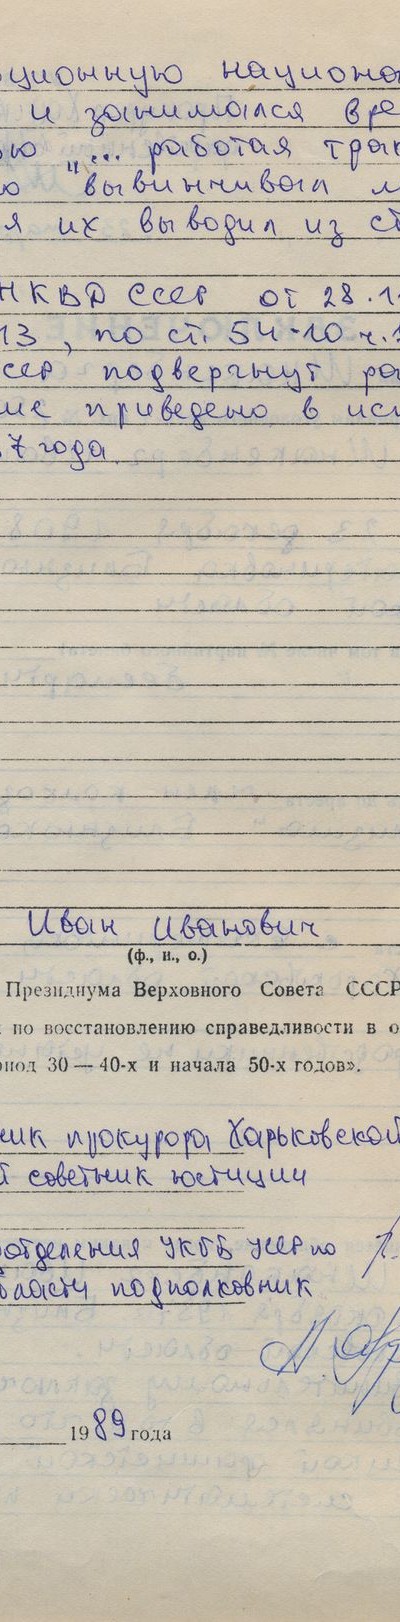 ционную национа
и занимался вре
ью "... работая трак
ю вывинчивал м
я их выводил из ст
НКВД СССР от 28.1
13, по ст. 54-10 ч.1
ССР подвергнут ра
ие приведено в исп
7 года.
Иван Иванович
(ф., и., о.)
Президиума Верховного Совета СССР
по восстановлению справедливости в о
риод 30 — 40-х и начала 50-х годов».
ник прокурора Харьковской
й советник юстиции
отделения УКГБ УССР по
бласти подполковник
1989 года